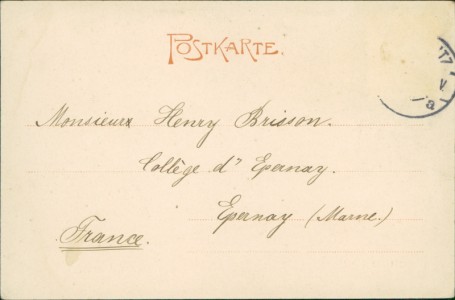 POSTKARTE.
Monsieur Henry Brisson.
Collège d' Epernay.
Epernay (Marne.)
France.